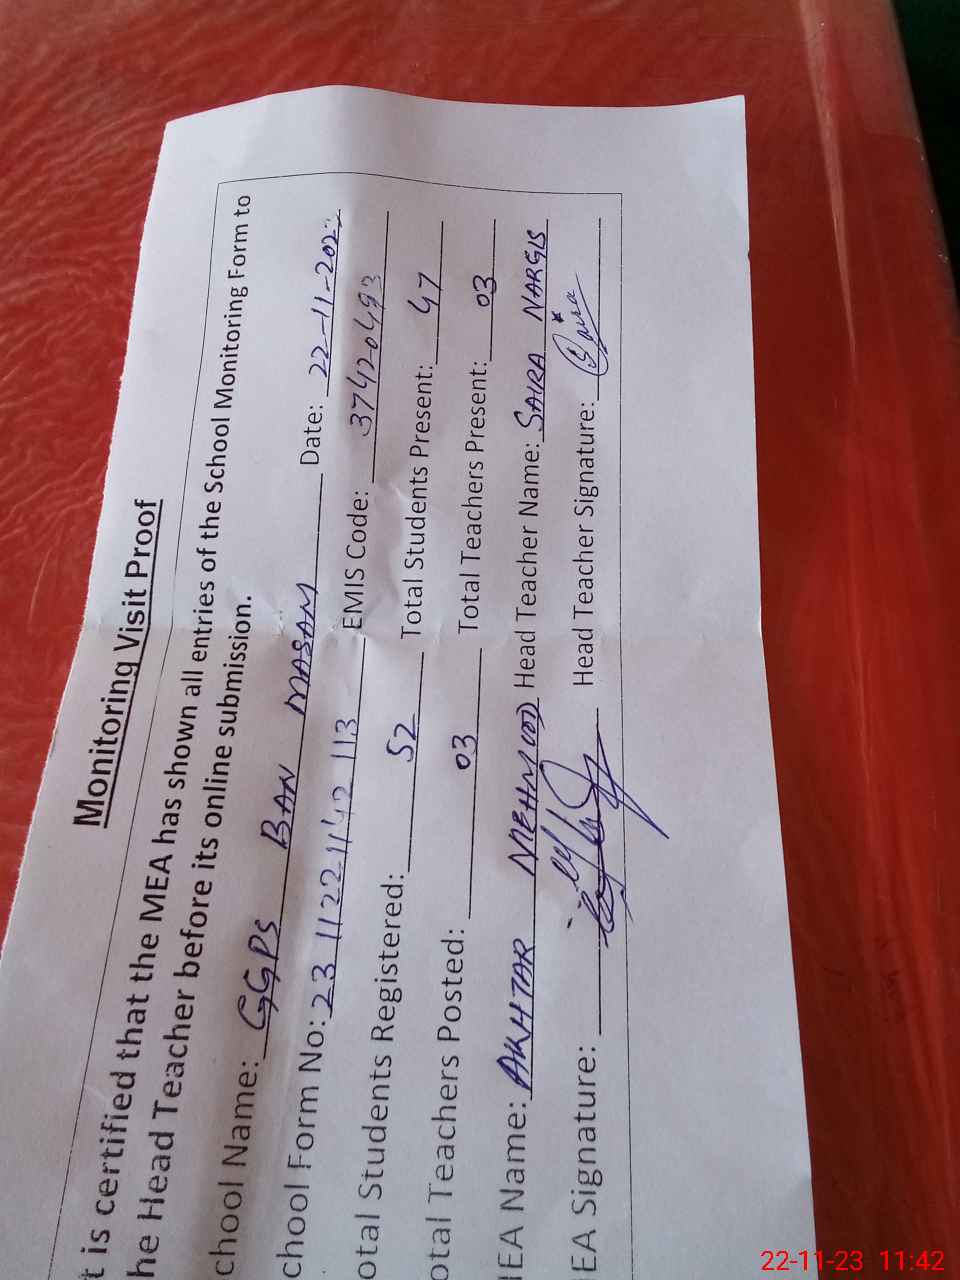 Monitoring Visit Proof
t is certified that the MEA has shown all entries of the School Monitoring Form to
he Head Teacher before its online submission.
chool Name: GGPS BAN MASAM Date: 22-11-202
chool Form No: 23 1122-1142 113 EMIS Code: 37420493
otal Students Registered: 52 Total Students Present: 47
otal Teachers Posted: 03 Total Teachers Present: 03
IEA Name: AKHTAR MEHMOOD Head Teacher Name: SAIRA NARGIS
EA Signature: Head Teacher Signature: Saira
22-11-23 11:42